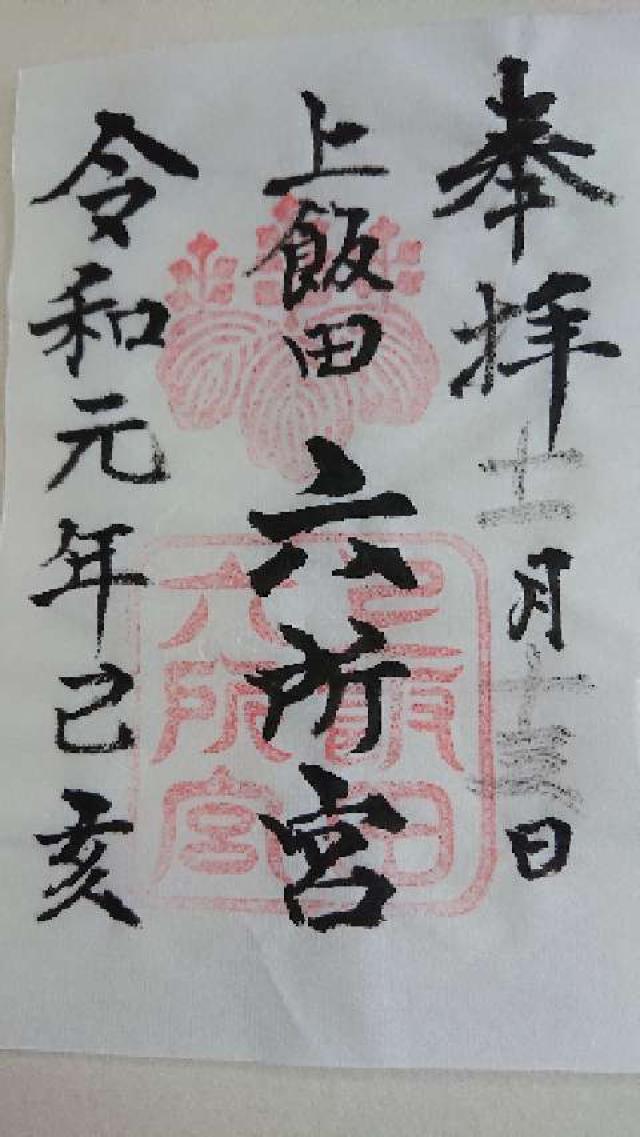 奉拝 十二月十三日
上飯田 六所宮
令和元年己亥
上飯田
六所宮